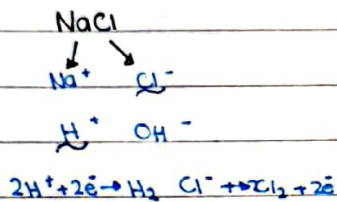 NaCl
Na⁺ Cl⁻
H⁺ OH⁻
2H⁺+2e⁻→H₂ Cl⁻→Cl₂+2e⁻